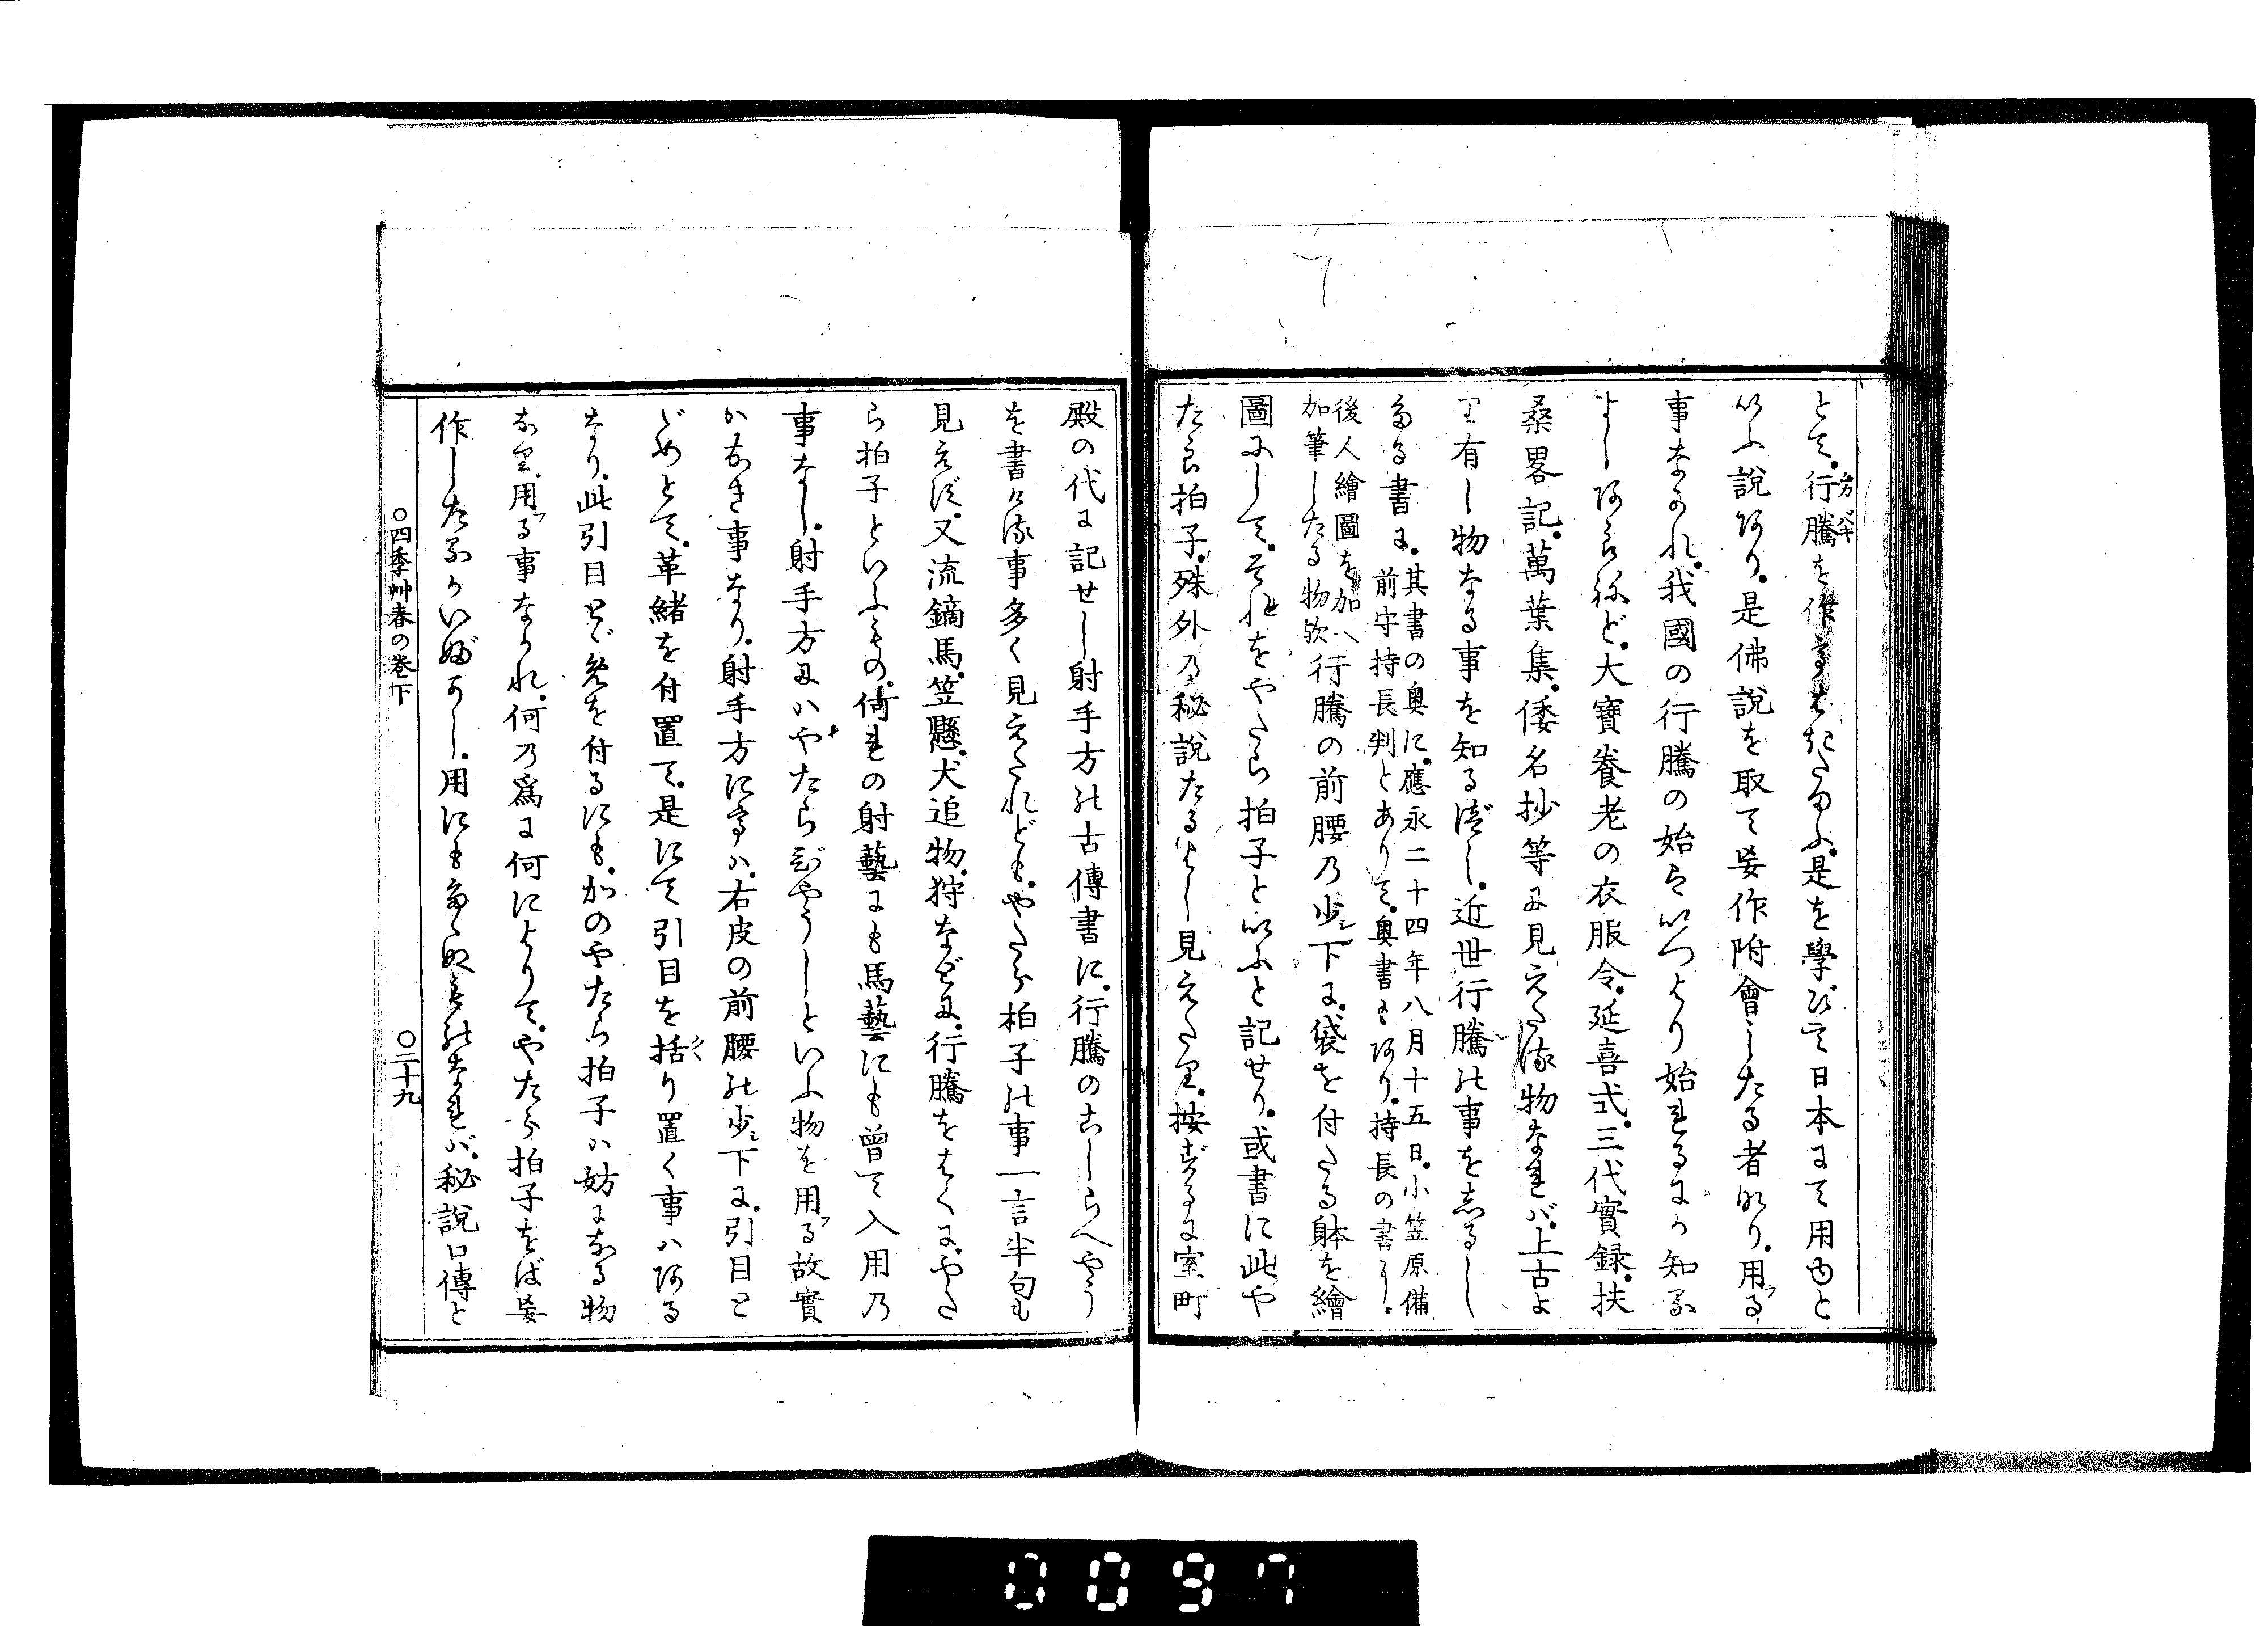 とて。行騰を作りはきたまふ。是を學びて日本にて用ゆと
いふ說あり。是佛說を取て妄作附會したる者なり。用る
事なかれ。我國の行騰の始はいつより始れるにか知れ
よしあらねど。大寶養老の衣服令。延喜式。三代實録。扶
桑畧記。萬葉集。倭名抄等に見えたる物なれバ。上古よ
り有し物なる事を知るべし。近世行騰の事をしるし
たる書に。其書の奥に。應永二十四年八月十五日。小笠原備
前守持長判とありて。奥書もあり。持長の書に
後人繪圖を加へ
加筆したる物歟行騰の前腰乃少シ下に。袋を付たる躰を繪
圖にして。それをやたら拍子といふと記せり。或書に此や
たら拍子。殊外乃秘說たるよし見えたり。按ずるに室町
殿の代に記せし射手方の古傳書に。行騰のこしらへやう
を書ける事多く見えたれども。やたら拍子の事一言半句も
見えず。又流鏑馬。笠懸。犬追物。狩などに。行騰をはくに。やた
ら拍子といふもの。何れの射藝にも馬藝にも曾て入用乃
事なし。射手方にハやたらびやうしといふ物を用る故實
ハなき事なり。射手方にてハ。右皮の前腰の少シ下に。引目と
どめとて。革緒を付置て。是にて引目を括り置く事ハある
なり。此引目とゞめを付るにも。かのやたら拍子ハ妨になる物
なり。用る事なかれ。何乃爲に何によりて。やたら拍子をば妄
作したるかいぶかし。用にもたゝぬものなれバ。秘說口傳と
○四季艸春の巻下
○二十九
0097